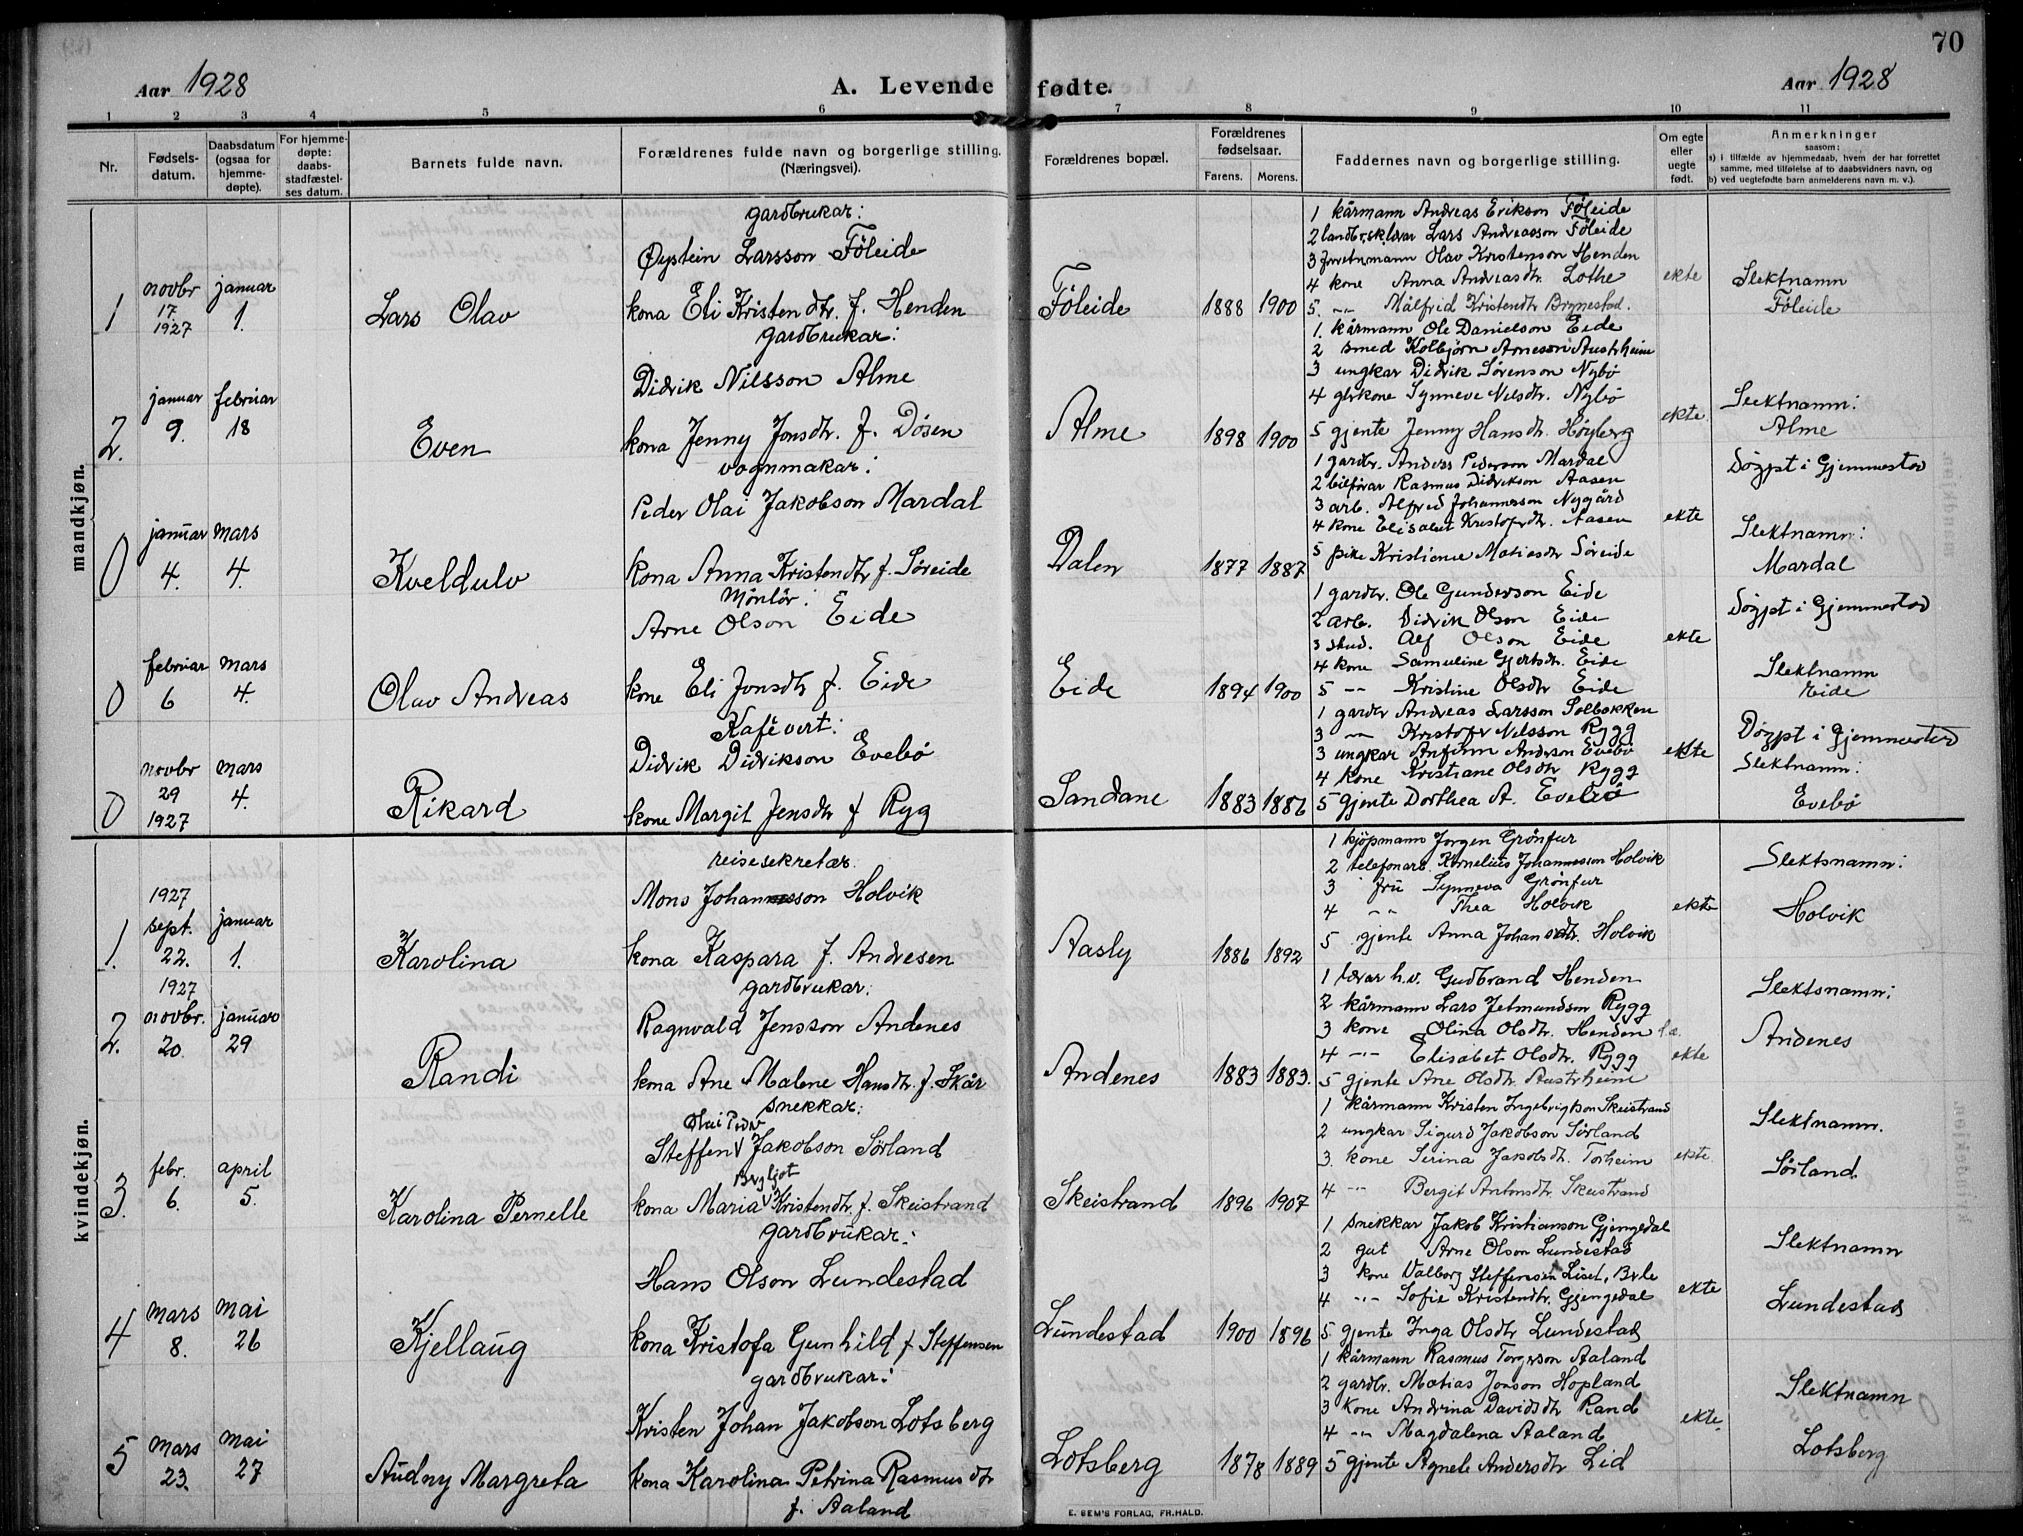 70
Aar 1928
A. Levende fødte.
Aar 1928
1 2 3 4 5 6 7 8 9 10 11
Nr.
Fødsels-
datum.
Daabsdatum
(ogsaa for
hjemme-
døpte).
For hjemme-
døpte:
daabs-
stadfæstel-
ses datum.
Barnets fulde navn.
Forældrenes fulde navn og borgerlige stilling.
(Næringsvei).
Forældrenes bopæl.
Forældrenes
fødselsaar.
Farens. Morens.
Faddernes navn og borgerlige stilling.
Om egte
eller
uegte
født.
Anmerkninger
saasom:
a) i tilfælde av hjemmedaab, hvem der har forrettet
samme, med tilføielse af to daabsvidners navn, og
b) ved uegtefødte barn anmelderens navn m. v.).
mandkjøn.
1
novbr
17.
1927
januar
1.
Lars Olav
gardbrukar:
Øystein Larsson Föleide
kona Eli Kristendtr. f. Henden
Föleide
1888 1900
1 kårmann Andreas Erikson Föleide
2 landbr.sk.lærar Lars Andreasson Föleide
3 Olav Kristenson Henden
4 kone Anna Andreasdtr. Lothe
5. -"- Målfrid Kristendtr Brynestad.
ekte
Slektnamn
Föleide
2.
januar
9.
februar
18
Even
gardbrukar:
Didrik Nilsson Alme
kona Jenny Jonsdtr. f. Døsen
Alme
1898 1900
1. kårmann Ole Danielson Eide
2 smed Kolbjørn Arneson Austrheim
3 ungkar Didrik Sørenson Nybö
4 gbr.kone Synneve Nilsdtr. Nybö
5 gjente Jenny Hansdtr. Høyberg
ekte
Slektnamn:
Alme
0
januar
4.
mars
4.
Kveldulv
vognmakar:
Peder Olai Jakobson Mardal
kona Anna Kristendtr f. Søreide
Dalen
1877 1887
1 gardbr. Anders Pederson Mardal
2 bilförar Rasmus Didrikson Aasen
3 arb. Alfred Johannesson Nygård
4 kone Elisabet Kristofrdtr. Aasen
5 pike Kristianne Matiasdtr Søreide
ekte
Døypt i Gjemmestad
Slektnamn:
Mardal
0
februar
6
mars
4.
Olav Andreas
Møntör:
Arne Olson Eide
kone Eli Jonsdtr f. Eide
Eide
1894 1900
1 gardbr. Ole Gunderson Eide
2 arb. Didrik Olson Eide
3 stud. Alf Olson Eide
4 kone Samueline Gjertsdtr. Eide
5 -"- Kristine Olsdtr Eide
ekte
Døypt i Gjemmestad
Slektnamn
Eide
0
novbr
29
1927
mars
4.
Rikard
Kafévert:
Didrik Didrikson Evebö
kone Margit Jensdtr f Ryg
Sandane
1883 1886
1 gardbr Andreas Larsson Solbakken
3 -"- Kristofer Nilsson Rygg
3 ungkar Anfinn Anderson Evebö
4 kone Kristiane Olsdtr Rygg
5 gjente Dorthea A. Evebö
ekte
Døypt i Gjemmestad
Slektnamn:
Evebö
kvindekjøn.
1.
1927
sept.
22.
januar
1.
Karolina
reisesekretær.
Mons Johannesson Holvik
kona Kaspara f. Andresen
Aasly
1886 1892
1 kjöpmann Jørgen Grönfur
2 telefonarb. Kornelius Johannesson Holvik
3 fru Synneva Grönfur
4 -"- Thea Holvik
5 gjente Anna Johansdtr. Holvik
ekte
Slektsnamn:
Holvik
2.
1927
novbr.
20.
januar
29
Randi
gardbrukar:
Ragnvald Jensson Andenes
kona Ane Malene Hansdtr. f. Skår
Andenes
1883 1883.
1 lærar h.v. Gudbrand Henden
2 kårmann Lars Jetmundson Rygg
3 kone Olina Olsdtr. Henden
4 -"- Elisabet Olsdtr. Rygg
5 gjente Ane Olsdtr. Austrheim
ekte
Slektsnamn:
Andenes
3.
febr.
6.
april
5.
Karolina Pernelle
snekkar:
Olai Peder
Steffen V Jakobson Sörland
Bergljot
kona Maria V Kristendtr. f. Skeistrand
Skeistrand
1896 1907
1 kårmann Kristen Ingebrigtson Skeistrand
2 ungkar Sigurd Jakobson Sörland
3. kone Serina Jakobsdtr. Torheim
4 -"- Bergit Antonsdtr. Skeistrand
ekte.
Slektnamn.
Sörland.
4
mars
8.
mai
26
Kjellaug
gardbrukar:
Hans Olson Lundestad
kona Kristofa Gunhild f Steffensen
Lundestad
1900 1896
1 snekkar Jakob Kristianson Gjengedal
2 gut Arne Olson Lundestad
3 kone Valborg Steffensen Liset, Brle
4 -"- Sofie Kristendtr. Gjengedal
5. gjente Inga Olsdtr Lundestad
ekte
Slektnamn
Lundestad
5
mars
23.
mai
27
Audny Margreta
gardbrukar:
Kristen Johan Jakobson Lotsberg
kona Karolina Petrina Rasmusdtr
f. Aaland
Lotsberg
1878 1889
1 kårmann Rasmus Torgerson Aaland
2 gardbr. Matias Jonson Hopland
3 kone Andrina Davidsdtr Rand
4 -"- Magdalena Aaland
5 gjente Agnele Andersdtr Lid
ekte.
Slektnamn
Lotsberg
E. SEM'S FORLAG, FR.HALD.